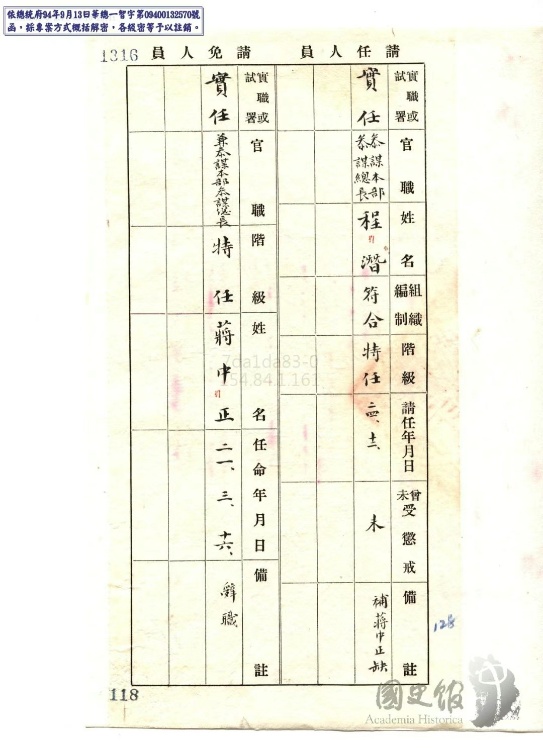 依總統府94年9月13日華總一智字第09400132570號
函，採專案方式概括解密，各級密等予以註銷。
1316
請任人員
實職或試署
實任
官職
參謀本部
參謀總長
姓名
程潛
組織編制
符合
階級
特任
請任年月日
二四、十二、
曾未受懲戒
未
備註
補蔣中正缺
請免人員
實職或試署
實任
官職
兼參謀本部參謀總長
階級
特任
姓名
蔣中正
任命年月日
二一、三、十六、
備註
辭職
128
118
7da1da83-0
154.84.1.161
國史館
Academia Historica